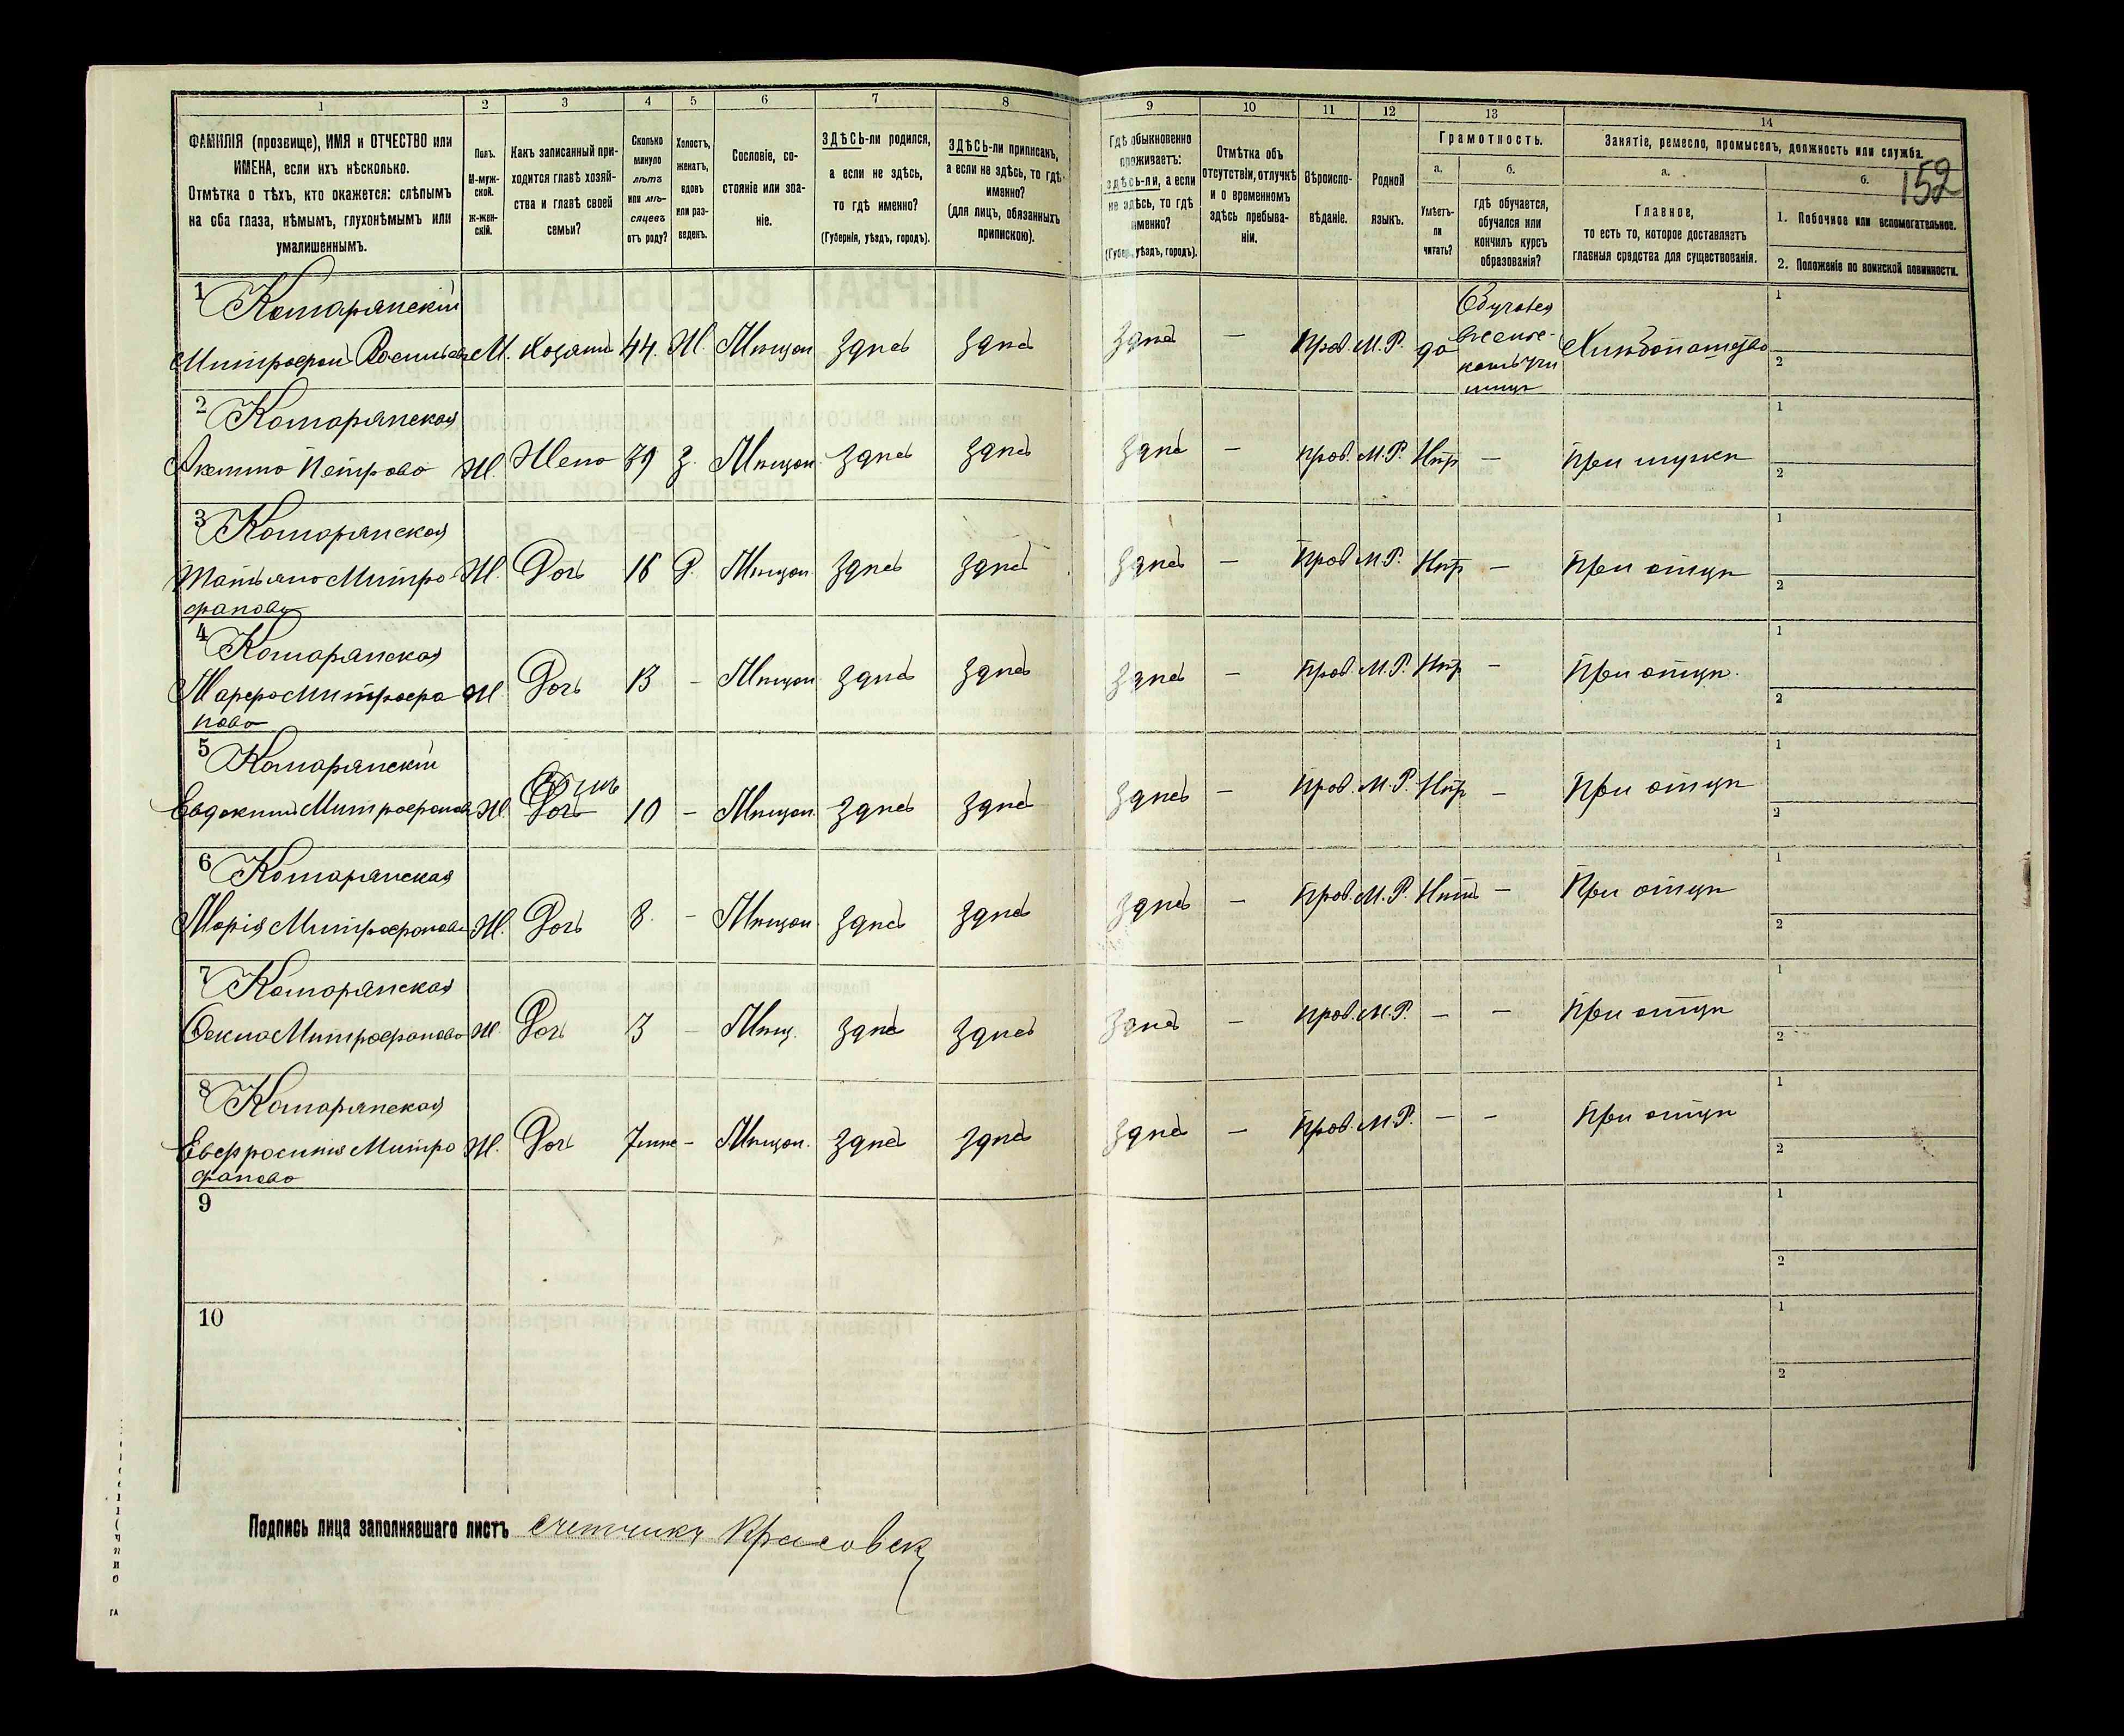 1 2 3 4 5 6 7 8 9 10 11 12 13 14
ФАМИЛІЯ (прозвище), ИМЯ и ОТЧЕСТВО или
ИМЕНА, если ихъ нѣсколько.
Отмѣтка о тѣхъ, кто окажется: слѣпымъ
на оба глаза, нѣмымъ, глухонѣмымъ или
умалишеннымъ.
Полъ.
М-муж-
ской.
Ж-жен-
скій.
Какъ записанный при-
ходится главѣ хозяй-
ства и главѣ своей
семьи?
Сколько
минуло
лѣтъ
или мѣ-
сяцевъ
отъ роду?
Холостъ,
женатъ,
вдовъ
или раз-
веденъ.
Сословіе, со-
стояніе или зва-
ніе.
ЗДѢСЬ-ли родился,
а если не здѣсь,
то гдѣ именно?
(Губернія, уѣздъ, городъ).
ЗДѢСЬ-ли приписанъ,
а если не здѣсь, то гдѣ
именно?
(для лицъ, обязанныхъ
припискою).
Гдѣ обыкновенно
проживаетъ:
здѣсь-ли, а если
не здѣсь, то гдѣ
именно?
(Губер., уѣздъ, городъ).
Отмѣтка объ
отсутствіи, отлучкѣ
и о временномъ
здѣсь пребыва-
ніи.
Вѣроиспо-
вѣданіе.
Родной
языкъ.
Грамотность.
а.
Умѣетъ-
ли
читать?
б.
гдѣ обучается,
обучался или
кончилъ курсъ
образованія?
Занятіе, ремесло, промыселъ, должность или служба.
152
а.
Главное,
то есть то, которое доставляетъ
главныя средства для существованія.
б.
1. Побочное или вспомогательное.
2. Положеніе по воинской повинности.
1 Комарянскій
Митрофанъ Васильевъ М. Хозяинъ 44. Ж. Мѣщан здѣсь здѣсь здѣсь — Прав. М.Р. да
1
2
2 Комарянская
Петрова Ж. Жена 39 З. Мѣщан. здѣсь здѣсь здѣсь — прав. М.Р. Нѣт — При мужѣ
1
2
3 Комарянская
Татьяна Митро Ж. Дочь Д. Мѣщан. здѣсь здѣсь здѣсь — Прав М.Р. Нѣт — При отцѣ
фанова
1
2
4 Комарянская
Марфа Митрофа Ж Дочь 13 – Мѣщан здѣсь здѣсь здѣсь — Прав. М.Р. Нѣт — При отцѣ.
нова
1
2
5 Комарянскій
Евдокимъ Митрофанов Ж. Дочь 10 – Мѣщан. здѣсь здѣсь здѣсь — Прав. М.Р. Нѣт — При отцѣ
1
2
6 Комарянская
Марія Митрофанова Ж. Дочь 8. – Мѣщан. здѣсь здѣсь здѣсь — Прав. М.Р. Нѣтъ — При отцѣ
1
2
7 Комарянская
Митрофанова Ж Дочь 3 – Мѣщ. здѣсь здѣсь здѣсь — прав. М.Р. — — При отцѣ
1
2
8 Комарянская
Евфросинія Митро Ж. Дочь – Мѣщан. здѣсь здѣсь здѣсь — Прав. М.Р. — — При отцѣ
фанова
1
2
9
1
2
10
1
2
Подпись лица заполнявшаго листъ счетчикъ